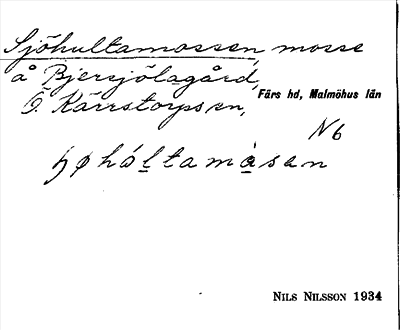 Sjöhultamossen, mosse
å Bjersjölagård,
Ö. Kärrstorps sn, Färs hd, Malmöhus län
N6
NILS NILSSON 1934